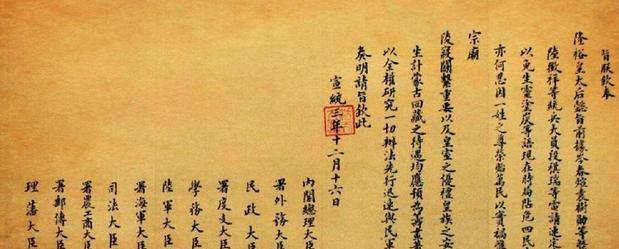 旨朕欽奉
隆裕皇太后懿旨前據岑春煊袁樹勛等暨
陸徵祥等統兵大員段祺瑞等電請速定
以免生靈塗炭等語現在時局阽危四民
亦何忍因一姓之尊榮貽萬民以實禍惟
宗廟
陵寢關繫重要以及皇室之優禮皇族之安
生計蒙古回藏之待遇均應預為籌畫
以全權研究一切辦法先行迅速與民軍
奏明請旨欽此
宣統三年十二月十六日
內閣總理大臣
署外務大臣
民政大臣
署度支大臣
學務大臣
陸軍大臣
署海軍大臣
司法大臣
署農工商大臣
署郵傳大臣
理藩大臣